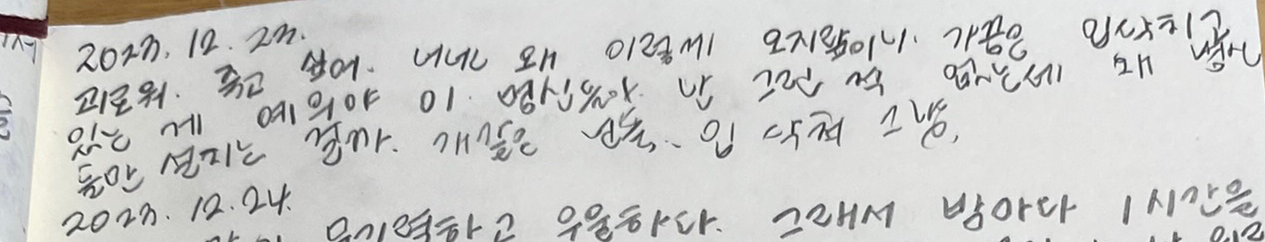 2023. 12. 23.
괴로워. 죽고 싶어. 너네는 왜 이렇게 오지랖이니. 가끔은 입닥치고
있는 게 예의야 이 병신들아. 난 그런 적 없는데 왜 병신
들만 설치는 걸까. 개같은 년들. 입 닥쳐 그냥.
2023. 12. 24.
무기력하고 우울하다. 그래서 밤마다 1시간을